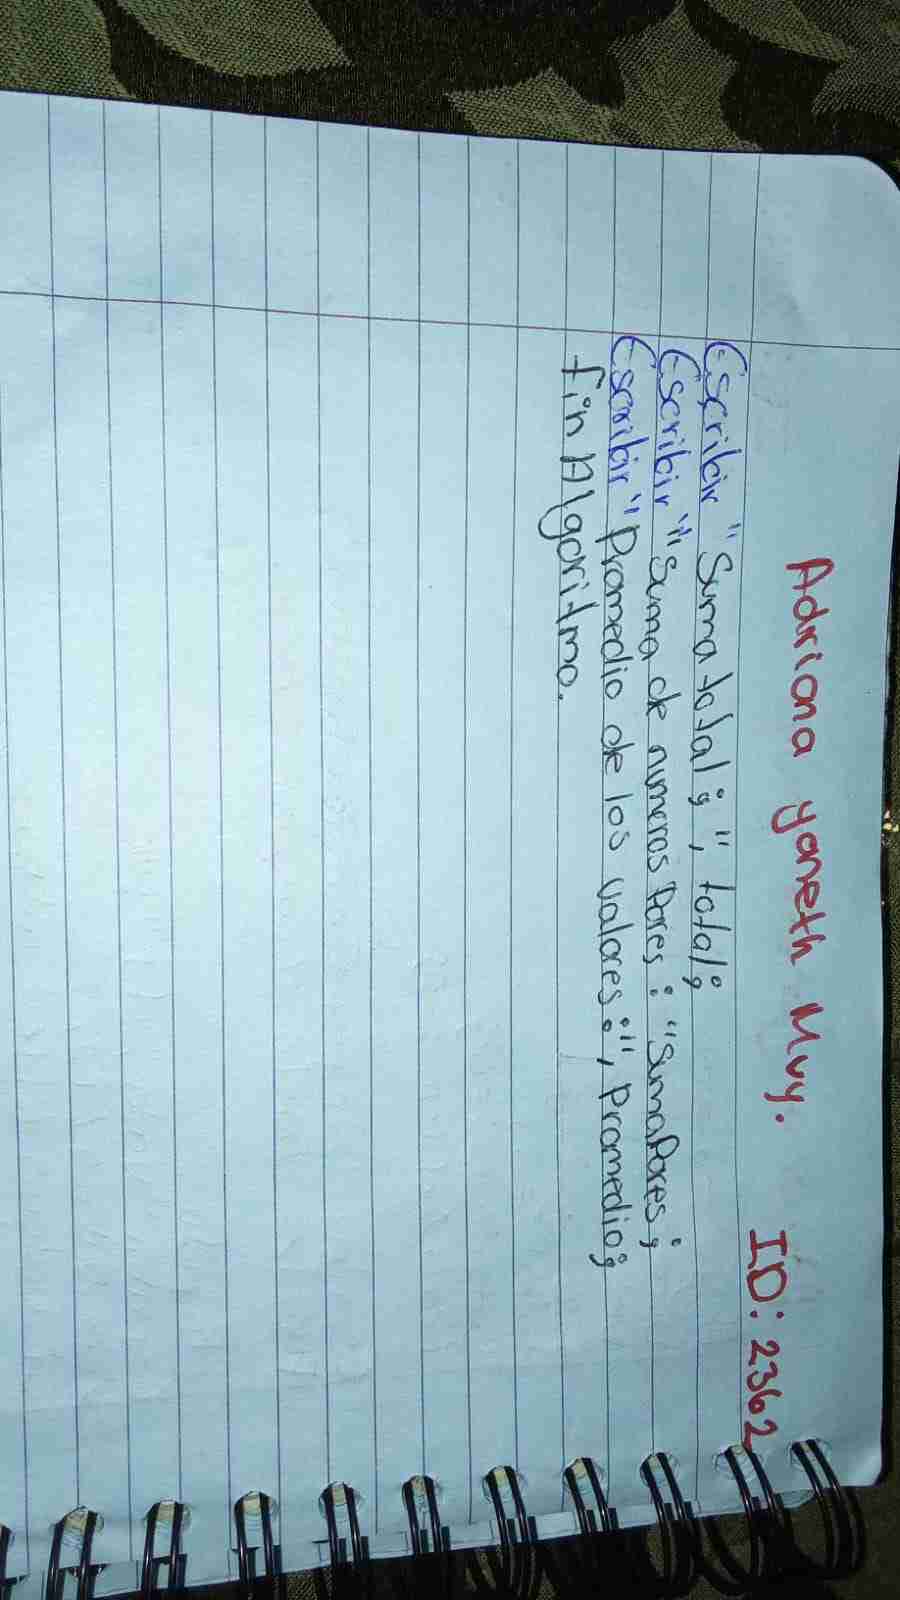 Adriana yaneth Muy. ID: 2362
Escribir "Suma total ; ", total;
Escribir "" Suma de numeros Pares : "SumaPares ;
Escribir " Promedio de los valores : ", Promedio;
fin Algoritmo.